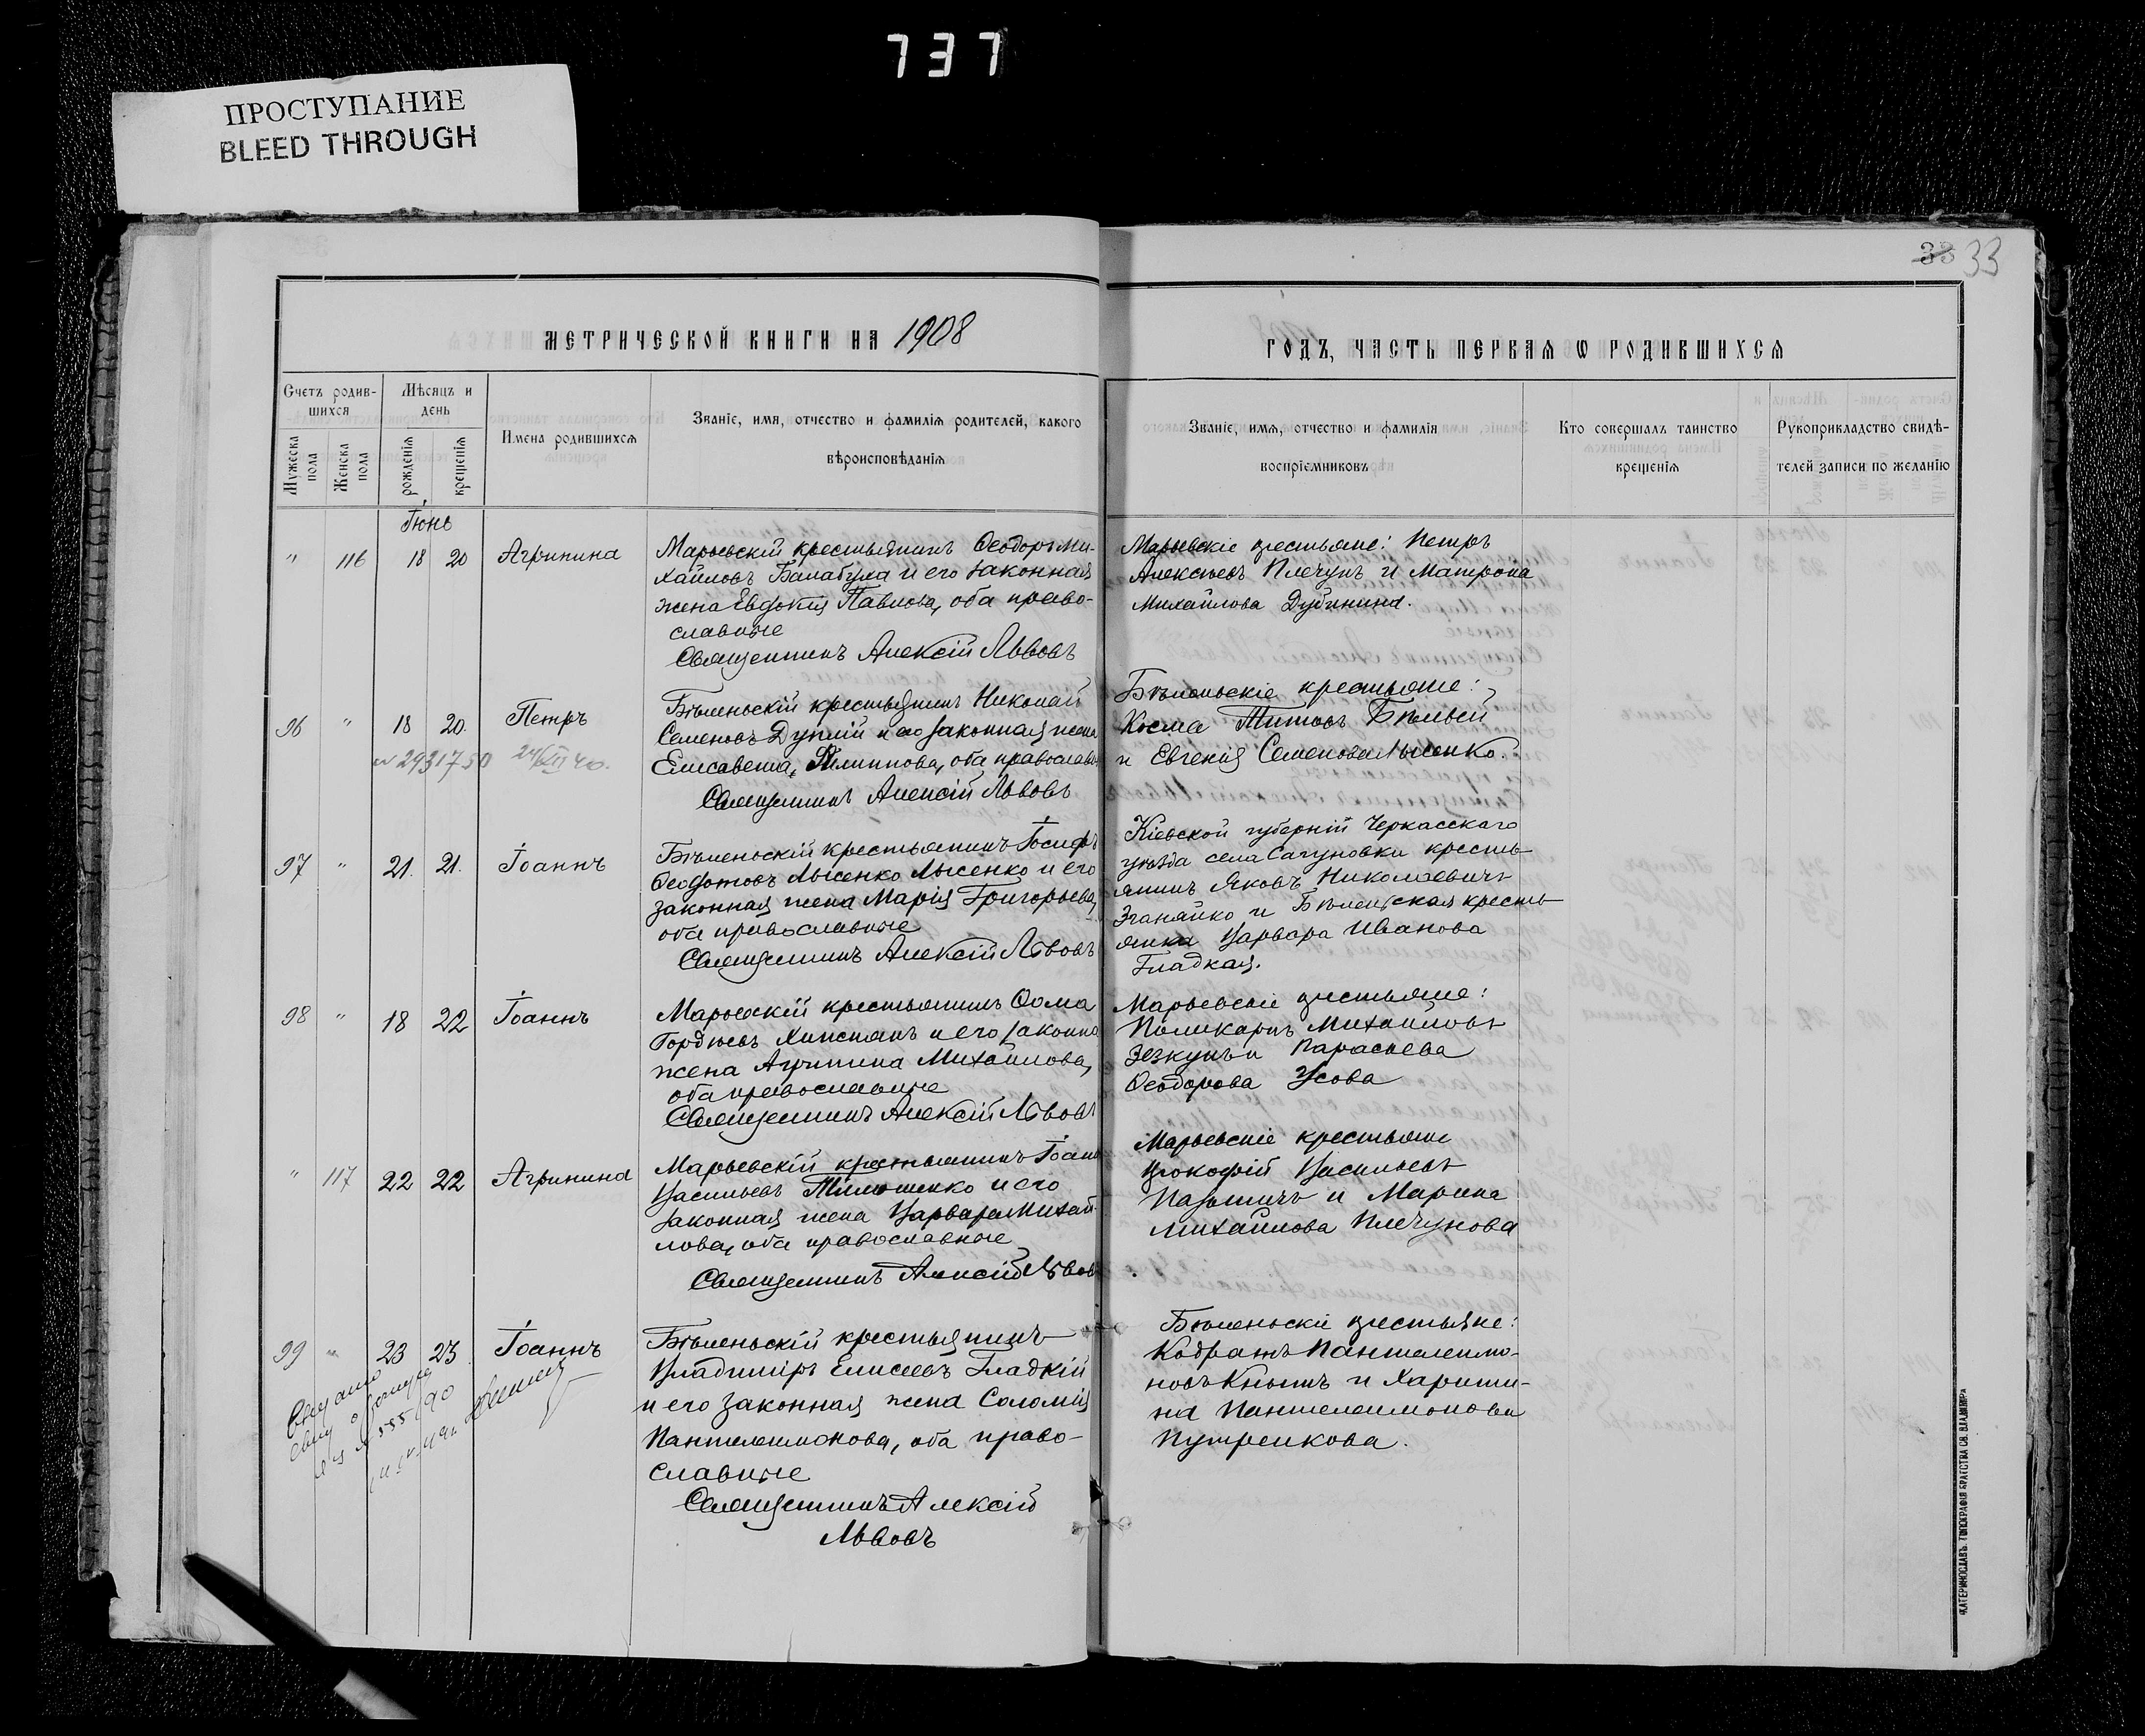 737
ПРОСТУПАНИЕ
BLEED THROUGH
33 33
МЕТРИЧЕСКОЙ КНИГИ НА 1908
ГОДЪ, ЧАСТЬ ПЕРВАЯ Ѡ РОДИВШИХСЯ
Счетъ родив-
шихся
Мѣсяцъ и
день
Мужеска
пола
Женска
пола
рожденія
крещенія
Имена родившихся
Званіе, имя, отчество и фамилія родителей, какого
вѣроисповѣданія
Званіе, имя, отчество и фамилія
воспріемниковъ
Кто совершалъ таинство
крещенія
Рукоприкладство свидѣ-
телей записи по желанію
Іюнь
" 116 18 20 Агрипина
Марьевскій крестьянинъ Ѳеодоръ Ми-
хайловъ Балабуха и его законная
жена Евдокія Павлова, оба право-
славные
Священникъ Алексій Львовъ
Марьевскіе крестьяне: Петръ
Алексѣевъ Плечунъ и Матрона
Михайлова Дубинина.
96 " 18 20. Петръ
Бѣленьскій крестьянинъ Николай
Семеновъ Дуплій и его законная жена
Елисавета Филиппова, оба православн
Священникъ Алексій Львовъ
Бѣленьскіе крестьяне:
Косма Титовъ Бѣлый
и Евгенія Семенова Лысенко.
97 " 21. 21. Іоаннъ
Бѣленьскій крестьянинъ Іосифъ
Ѳеодотовъ Лысенко Лысенко и его
законная жена Марія Григорьева,
оба православные
Священникъ Алексій Львовъ
Кіевской губерніи Черкасскаго
уѣзда села Сагуновки кресть-
янинъ Яковъ Николаевичъ
и Бѣленьская кресть-
янка Варвара Иванова
Гладкая.
98 " 18 22 Іоаннъ
Марьевскій крестьянинъ Ѳома
Гордѣевъ и его законна
жена Агрипина Михайлова,
оба православные
Священникъ Алексій Львовъ
Марьевскіе крестьяне:
Поликарпъ Михайловъ
и Параскева
Ѳеодорова Усова
" 117 22 22 Агрипина
Марьевскій крестьянинъ Іоанн
Васильевъ Тимошенко и его
законная жена Варвара Михай-
лова, оба православные
Священникъ Алексій Львовъ
Марьевскіе крестьяне
Прокофій Васильевъ
и Марина
Михайлова Плечунова
99 " 23 23 Іоаннъ
Бѣленьскій крестьянинъ
Владиміръ Елисеевъ Гладкій
и его законная жена Соломія
Пантелеимонова, оба право-
славные
Священникъ Алексій
Львовъ
Бѣленьскіе крестьяне:
Кодратъ Пантелеимо-
новъ Кнышъ и Харити-
на Пантелеимонова
Путренкова.
ЕКАТЕРИНОСЛАВЪ. ТИПОГРАФІЯ БРАТСТВА СВ. ВЛАДИМІРА